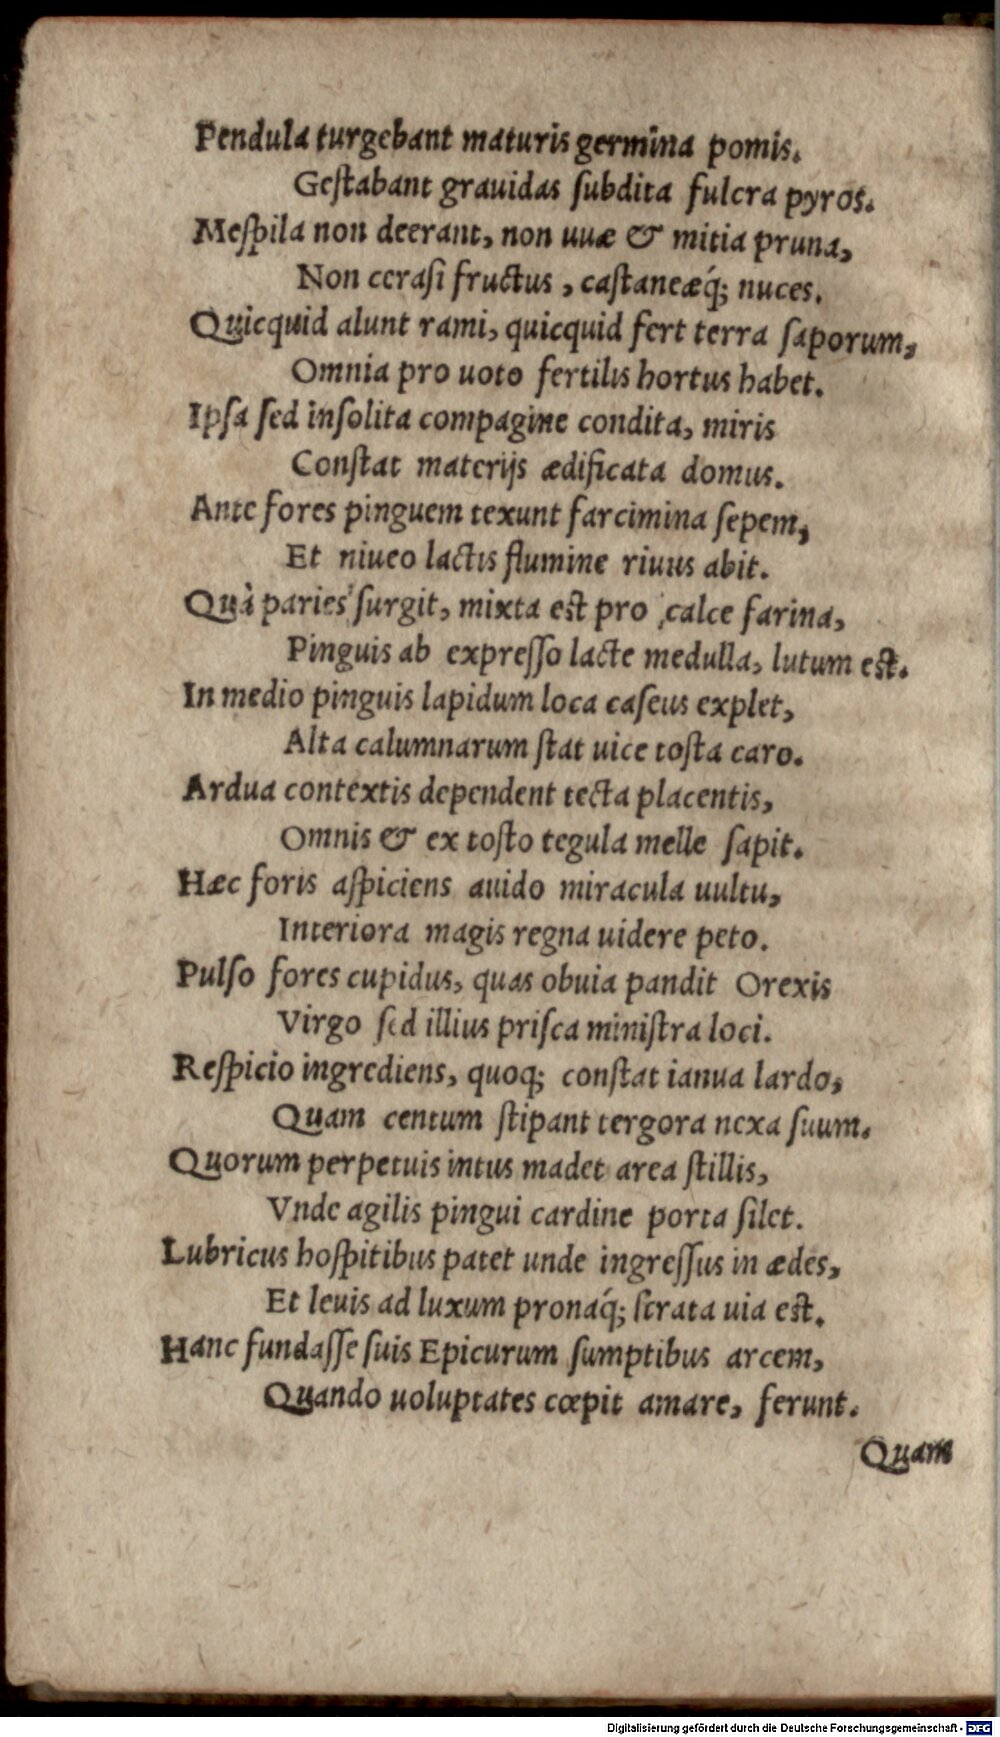 Pendula turgebant maturis germina pomis.
Geſtabant grauidas ſubdita fulcra pyros.
Meſpila non deerant, non uuæ & mitia pruna,
Non ceraſi fructus, caſtaneæq́; nuces.
Quicquid alunt rami, quicquid fert terra ſaporum,
Omnia pro uoto fertilis hortus habet.
Ipſa ſed inſolita compagine condita, miris
Conſtat materijs ædificata domus.
Ante fores pinguem texunt farcimina ſepem,
Et niueo lactis flumine riuus abit.
Quà paries ſurgit, mixta eſt pro calce farina,
Pinguis ab expreſſo lacte medulla, lutum eſt.
In medio pinguis lapidum loca caſeus explet,
Alta calumnarum ſtat uice toſta caro.
Ardua contextis dependent tecta placentis,
Omnis & ex toſto tegula melle ſapit.
Hæc foris aſpiciens auido miracula uultu,
Interiora magis regna uidere peto.
Pulſo fores cupidus, quas obuia pandit Orexis
Virgo ſed illius priſca miniſtra loci.
Reſpicio ingrediens, quoq; conſtat ianua lardo,
Quam centum ſtipant tergora nexa ſuum.
Quorum perpetuis intus madet area ſtillis,
Vnde agilis pingui cardine porta ſilet.
Lubricus hoſpitibus patet unde ingreſſus in ædes,
Et leuis ad luxum pronaq́; ſtrata uia eſt.
Hanc fundaſſe ſuis Epicurum ſumptibus arcem,
Quando uoluptates cœpit amare, ferunt.
Quam
Digitalisierung gefördert durch die Deutsche Forschungsgemeinschaft - DFG